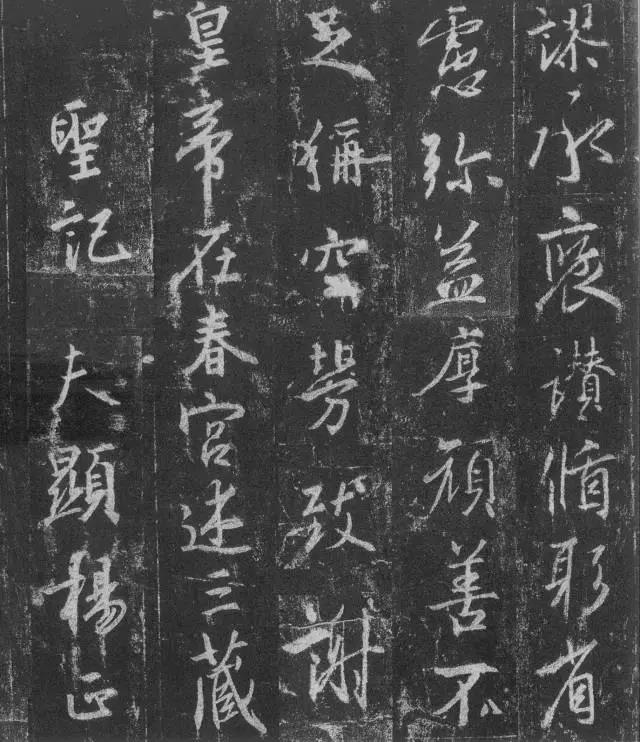 謬承褒讚循躬省
慮弥益厚顏善不
足稱空勞致謝
皇帝在春宮述三藏
聖記 夫顯揚正